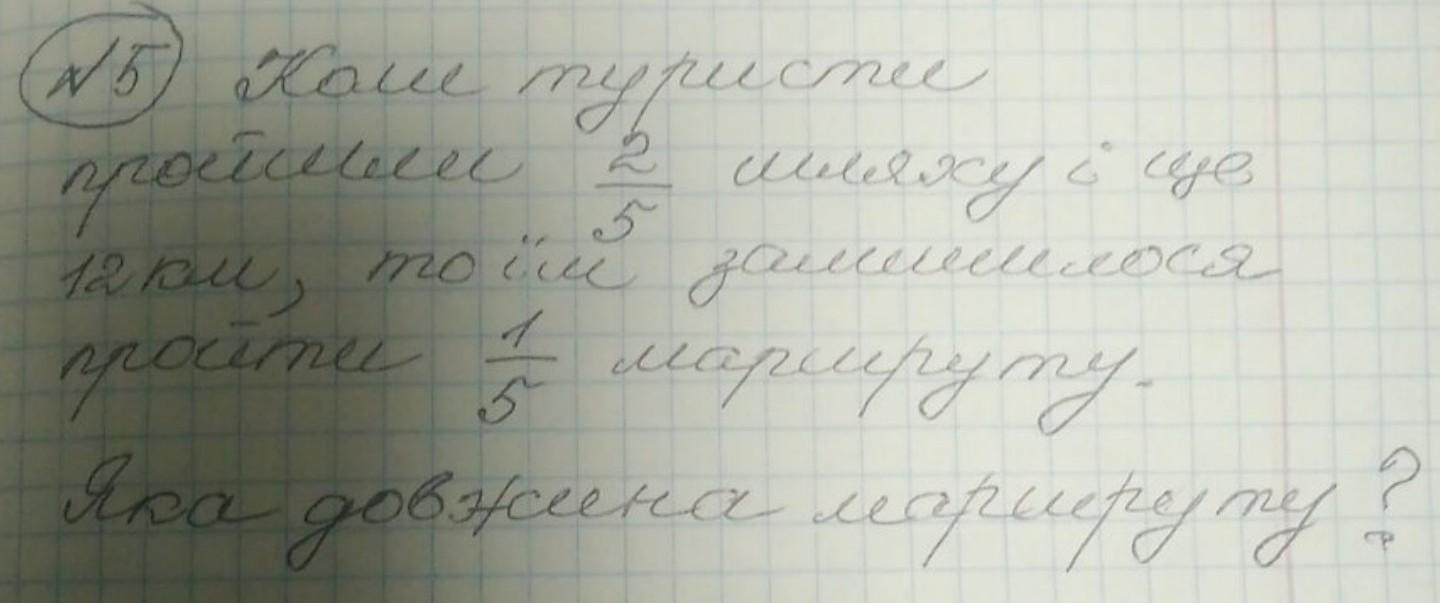 №5 Коли туристи
пройшли 2/5 шляху і ще
12 км, то їм залишилося
пройти 1/5 маршруту.
Яка довжина маршруту?